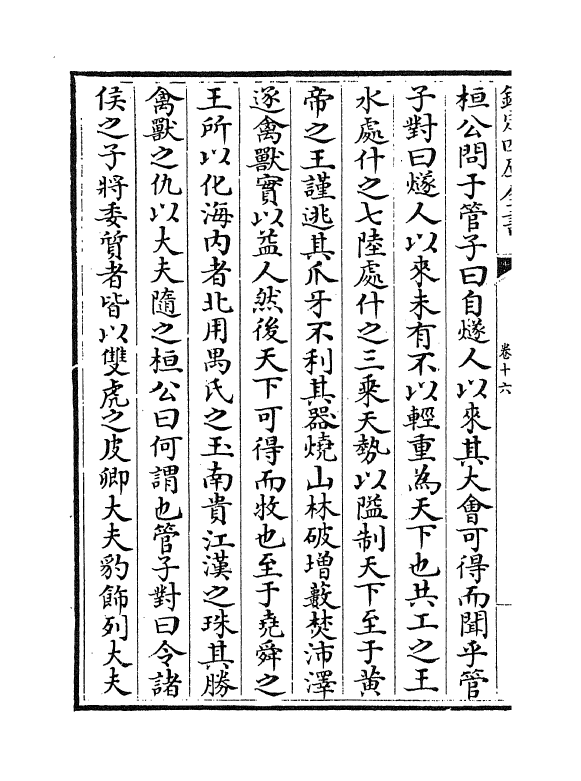 欽定四庫全書
卷十六
桓公問于管子曰自燧人以來其大㑹可得而聞乎管
子對曰燧人以來未有不以輕重為天下也共工之王
水處什之七陸處什之三乘天勢以隘制天下至于黄
帝之王謹逃其爪牙不利其器燒山林破增藪焚沛澤
逐禽獸實以益人然後天下可得而牧也至于堯舜之
王所以化海内者北用禺氏之玉南貴江漢之珠其勝
禽獸之仇以大夫隨之桓公曰何謂也管子對曰令諸
侯之子將委質者皆以雙虎之皮卿大夫豹飾列大夫